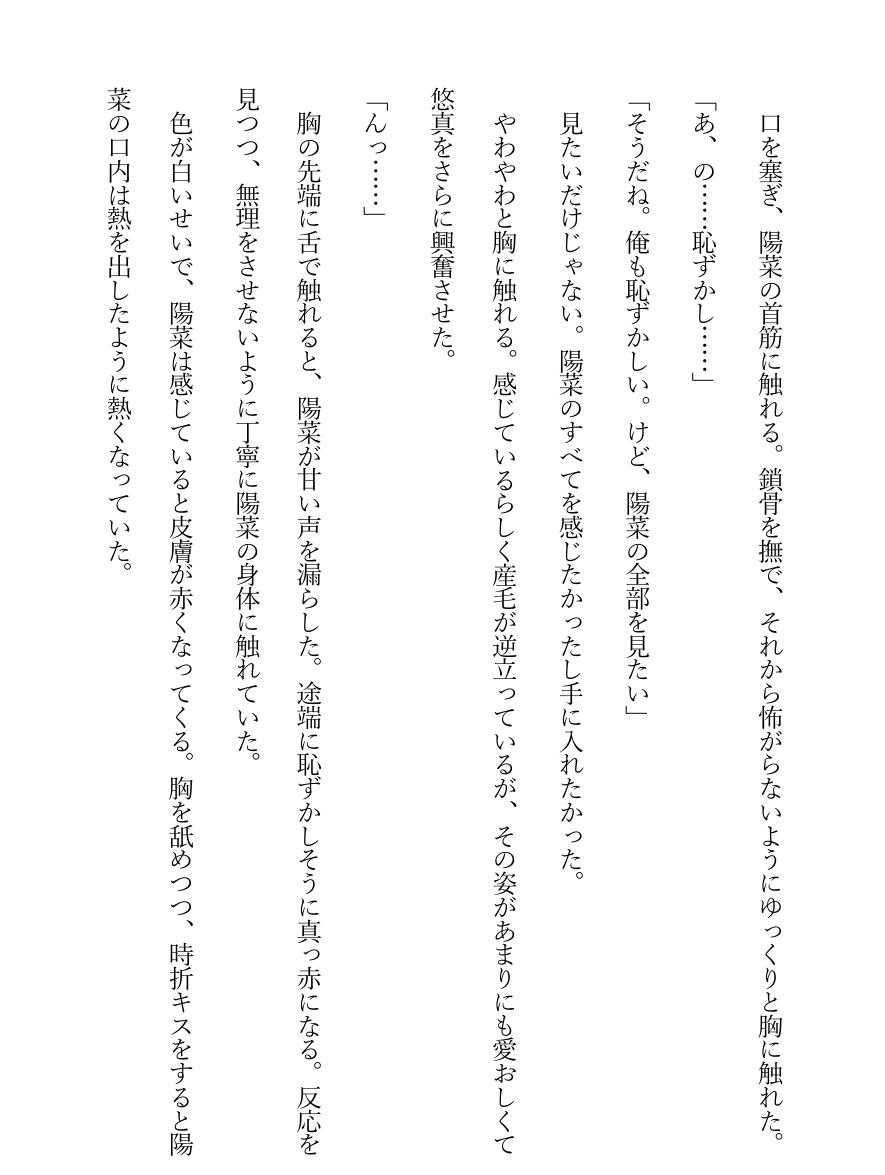 口を塞ぎ、陽菜の首筋に触れる。鎖骨を撫で、それから怖がらないようにゆっくりと胸に触れた。
「あ、の……恥ずかし……」
「そうだね。俺も恥ずかしい。けど、陽菜の全部を見たい」
見たいだけじゃない。陽菜のすべてを感じたかったし手に入れたかった。
やわやわと胸に触れる。感じているらしく産毛が逆立っているが、その姿があまりにも愛おしくて
悠真をさらに興奮させた。
「んっ……」
胸の先端に舌で触れると、陽菜が甘い声を漏らした。途端に恥ずかしそうに真っ赤になる。反応を
見つつ、無理をさせないように丁寧に陽菜の身体に触れていた。
色が白いせいで、陽菜は感じていると皮膚が赤くなってくる。胸を舐めつつ、時折キスをすると陽
菜の口内は熱を出したように熱くなっていた。